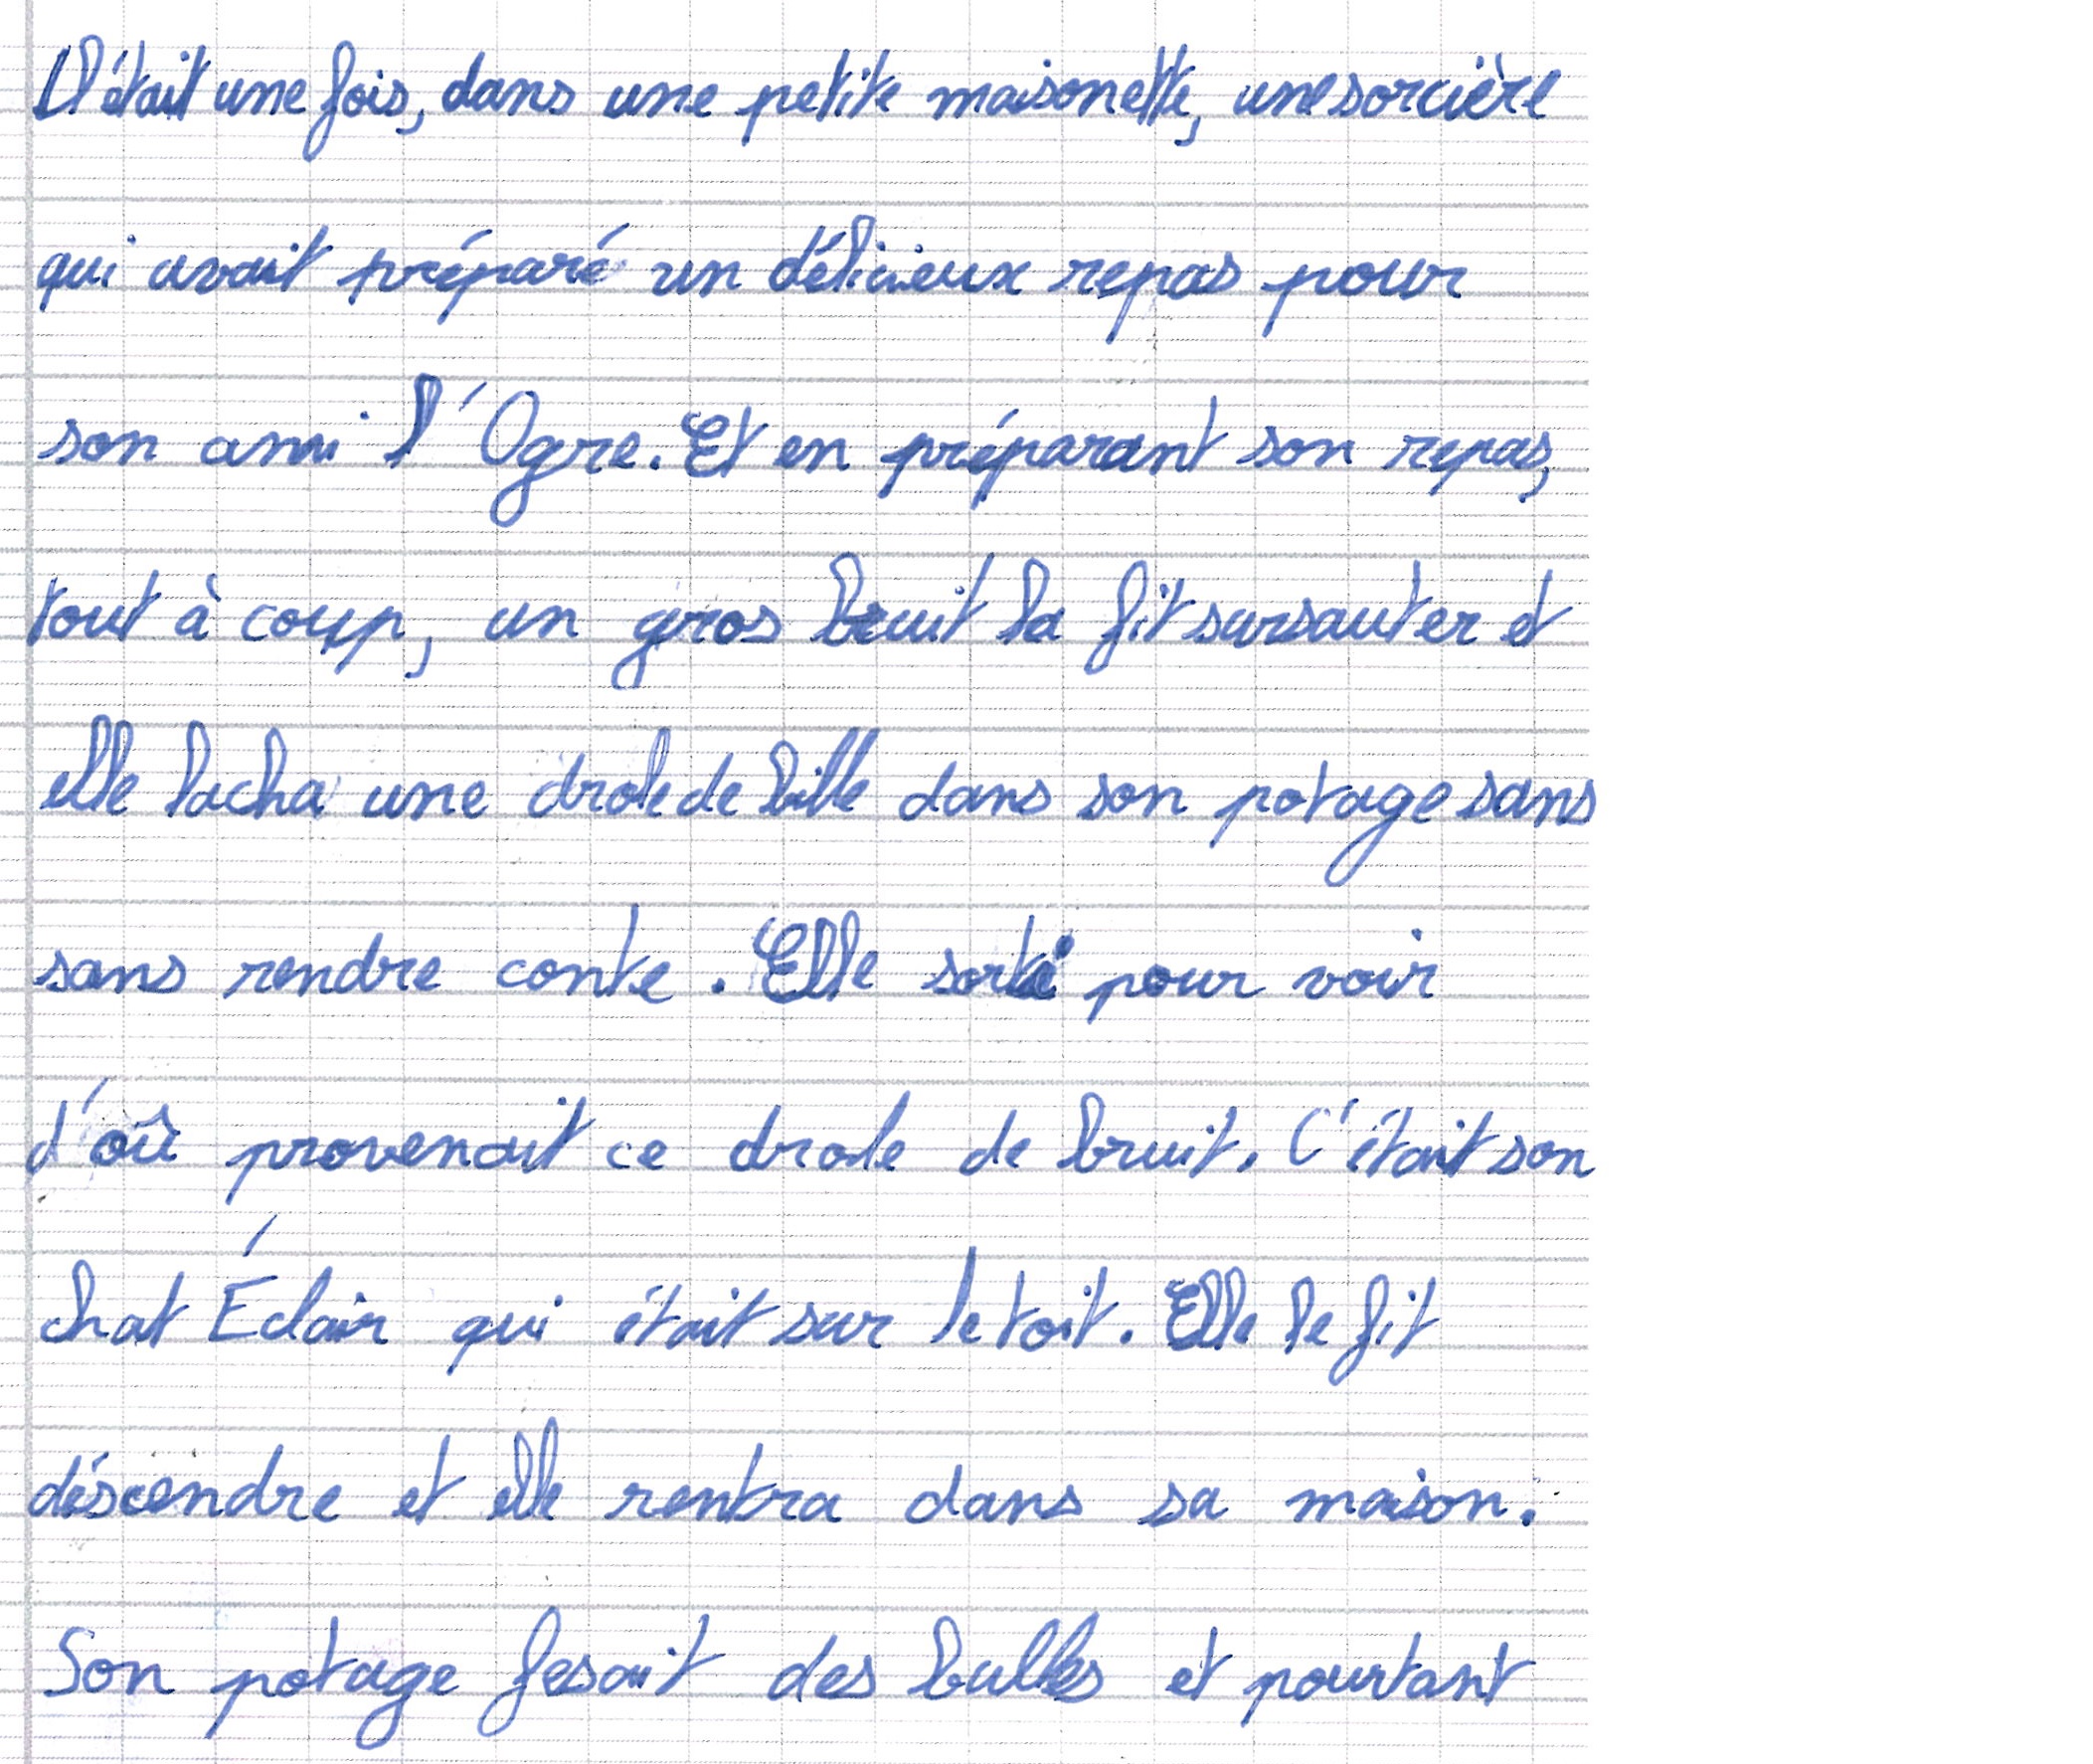 Il était une fois, dans une petite maisonette, une sorcière
qui avait préparé un délicieux repas pour
son ami l'Ogre. Et en préparant son repas,
tout à coup, un gros bruit la fit sursauter et
elle lacha une drole de bille dans son potage sans
sans rendre conte. Elle sorti pour voir
d'où provenait ce drole de bruit. C'était son
chat Éclair qui était sur le toit. Elle le fit
déscendre et elle rentra dans sa maison.
Son potage fesait des bulles et pourtant